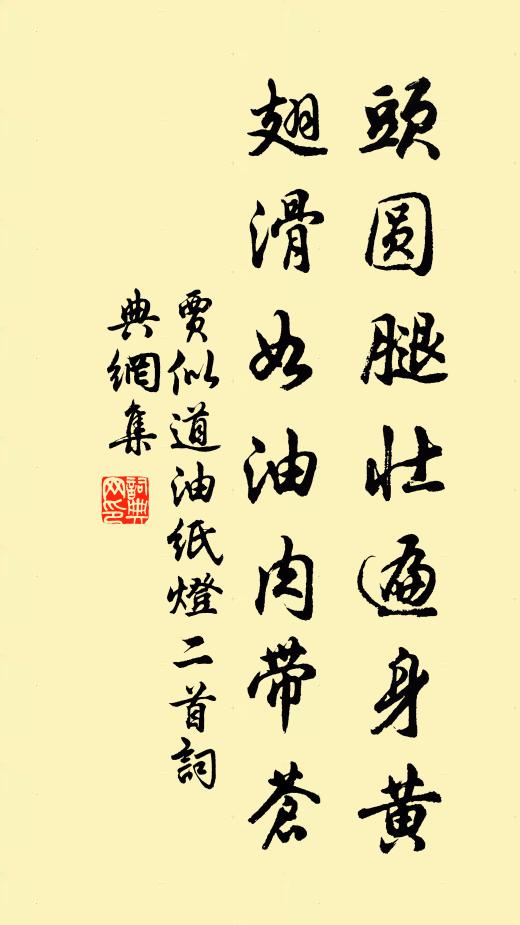 頭圓腿壯遍身黃
翅滑如油肉帶蒼
賈似道油紙燈二首詞
典網集
詞典網印